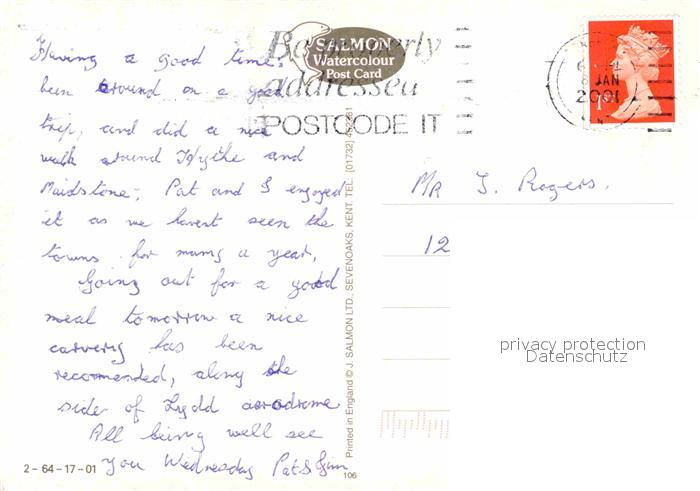 Having a good time,
been around on a good
trip, and did a nice
walk around Hythe and
Maidstone, Pat and I enjoyed
it as we havent seen the
towns for many a year,
Going out for a good
meal tomorrow a nice
carvery has been
recommended, along the
side of Lydd aerodrome
All being well see
you Wednesday Pat & Jim
2 – 64 – 17 – 01
SALMON
Watercolour
Post Card
Be properly
addressed
POSTCODE IT
JAN
2001
1st
Printed in England © J. SALMON LTD., SEVENOAKS, KENT. TEL. (01732)
106
MR J. Rogers.
12
privacy protection
Datenschutz